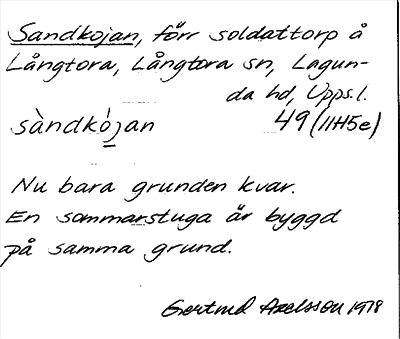 Sandkojan, förr soldattorp å
Långtora, Långtora sn, Lagun-
da hd, Upps.l.
sàndkójan 49 (11H5e)
Nu bara grunden kvar.
En sommarstuga är byggd
på samma grund.
Gertrud Axelsson 1978